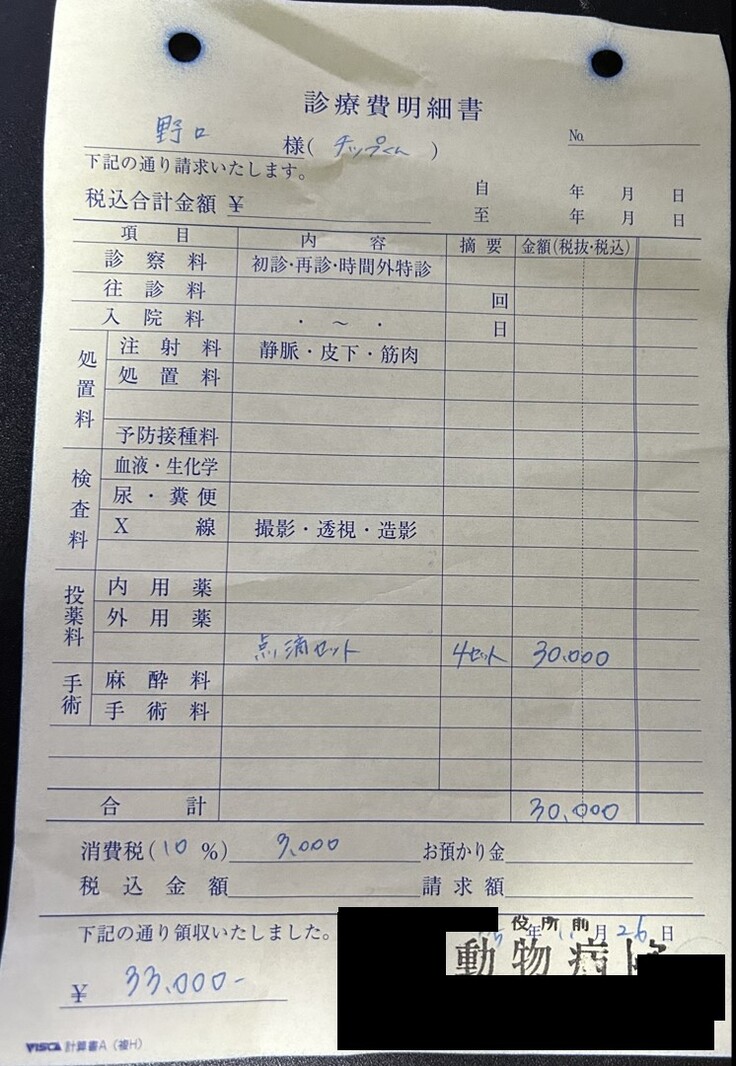 診療費明細書
野口 様( チップくん )
No.
下記の通り請求いたします。
自 年 月 日
税込合計金額 ¥
至 年 月 日
項目 内容 摘要 金額(税抜・税込)
診察料 初診・再診・時間外特診
往診料 回
入院料 ・ ~ ・ 日
処置料
注射料 静脈・皮下・筋肉
処置料
予防接種料
検査料
血液・生化学
尿・糞便
X線 撮影・透視・造影
投薬料
内用薬
外用薬
点滴セット 4セット 30.000
手術
麻酔料
手術料
合計 30,000
消費税(10%) 3,000 お預かり金
税込金額 請求額
下記の通り領収いたしました。
年 月 26日
役所前
動物病院
¥ 33,000-
VISCA 計算書A(複H)